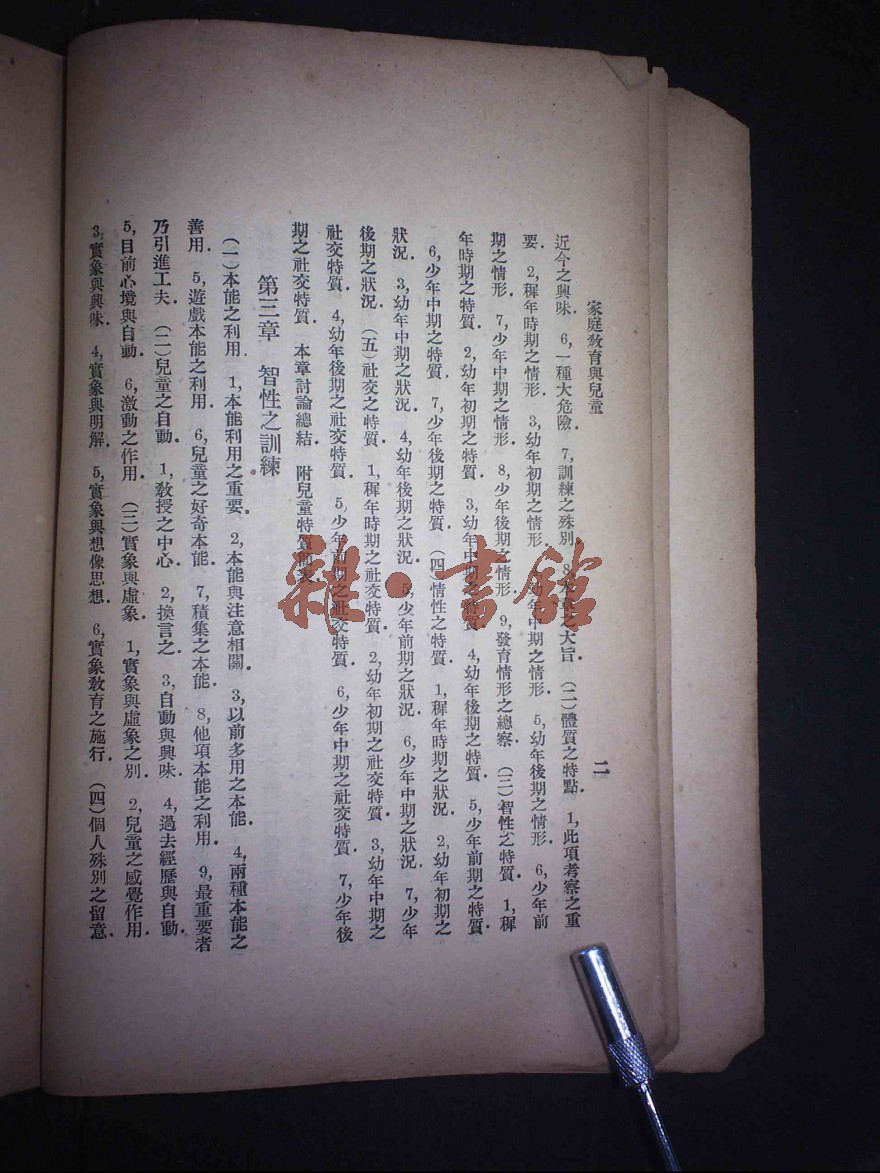 家庭教育與兒童
二
近今之興味．6,一種大危險．7,訓練之殊別．8,本章之大旨．(二)體質之特點．1,此項考察之重
要．2,穉年時期之情形．3,幼年初期之情形．幼年中期之情形．5,幼年後期之情形．6,少年前
期之情形．7,少年中期之情形．8,少年後期之情形．9,發育情形之總察．(三)智性之特質．1,穉
年時期之特質．2,幼年初期之特質．3,幼年中期之特質．4,幼年後期之特質．5,少年前期之特質．
6,少年中期之特質．7,少年後期之特質．(四)情性之特質．1,穉年時期之狀況．2,幼年初期之
狀況．3,幼年中期之狀況．4,幼年後期之狀況．5,少年前期之狀況．6,少年中期之狀況．7,少年
後期之狀況．(五)社交之特質．1,穉年時期之社交特質．2,幼年初期之社交特質．3,幼年中期之
社交特質．4,幼年後期之社交特質．5,少年前期之社交特質．6,少年中期之社交特質．7,少年後
期之社交特質．本章討論總結．附兒童特質
第三章 智性之訓練
(一)本能之利用．1,本能利用之重要．2,本能與注意相關．3,以前多用之本能．4,兩種本能之
善用．5,遊戲本能之利用．6,兒童之好奇本能．7,積集之本能．8,他項本能之利用．9,最重要者
乃引進工夫．(二)兒童之自動．1,教授之中心．2,換言之．3,自動與興味．4,過去經歷與自動．
5,目前心境與自動．6,激動之作用．(三)實象與虛象．1,實象與虛象之別．2,兒童之感覺作用．
3,實象與興味．4,實象與明解．5,實象與想像思想．6,實象教育之施行．(四)個人殊別之留意．
雜·書館